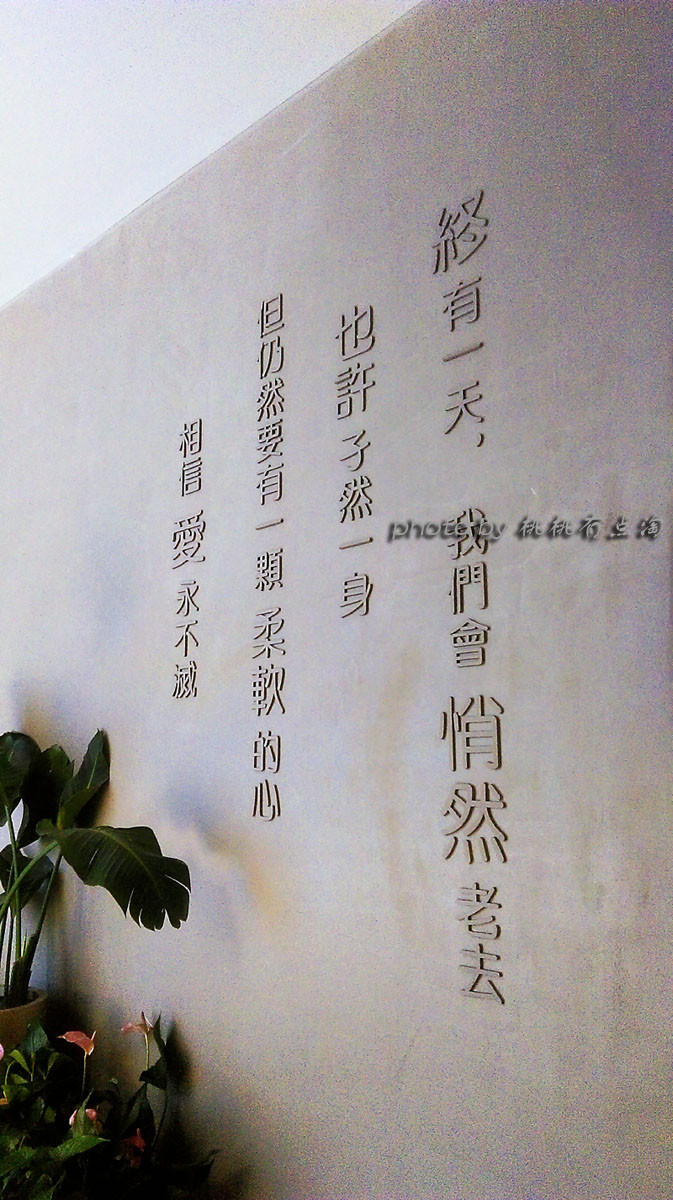 終有一天，我們會悄然老去
也許孑然一身
但仍然要有一顆柔軟的心
相信愛永不滅
photo by 桃桃有点淘